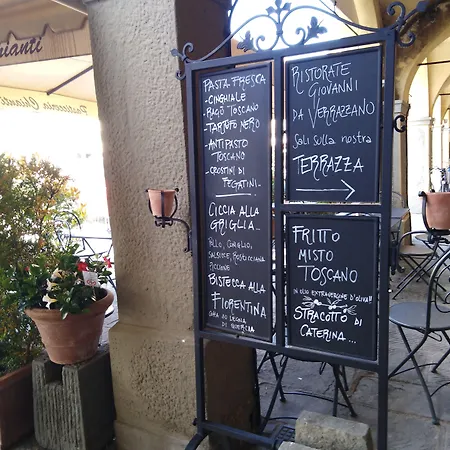 rianti
PASTA FRESCA
-CINGHIALE
-RAGÙ TOSCANO
-TARTUFO NERO
-ANTIPASTO
TOSCANO
-CROSTINI DI
FEGATINI.
CICCIA ALLA
GRIGLIA...
POLLO, CONIGLIO,
SALSICCE, ROSTICCIANA
PICCIONE
BISTECCA ALLA
FIORENTINA
DI QUERCIA
RISTORATE
GIOVANNI
DA VERRAZZANO
SALI SULLA NOSTRA
TERRAZZA
FRITTO
MISTO
TOSCANO
IN OLIO EXTRAVERGINE D'OLIVA!!
STRACOTTO DI
CATERINA...